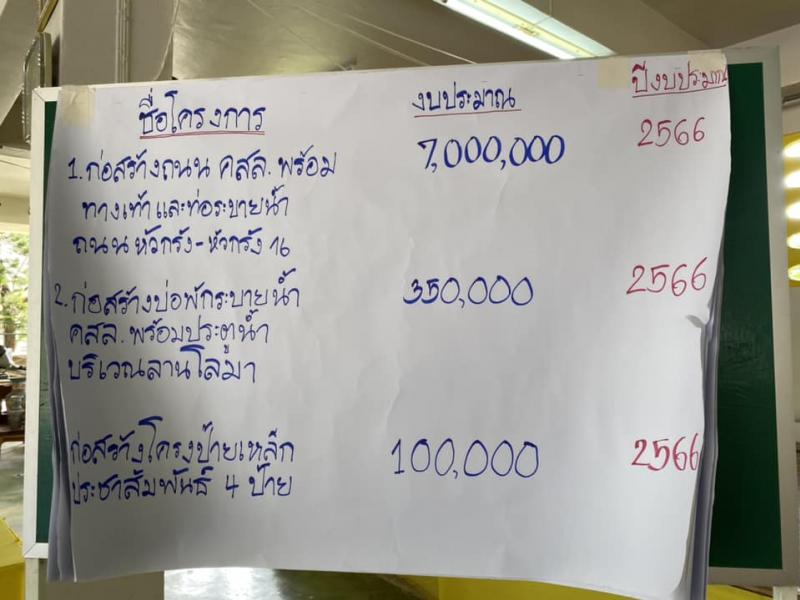 ชื่อโครงการ งบประมาณ ปีงบประมาณ
1. ก่อสร้างถนน คสล. พร้อม 7,000,000 2566
ทางเท้า และท่อระบายน้ำ
ถนน หัวกรัง-หัวกรัง 16
2. ก่อสร้างบ่อพักระบายน้ำ 350,000 2566
คสล. พร้อมประตูน้ำ
บริเวณลานโลมา
ก่อสร้างโครงป้ายเหล็ก 100,000 2566
ประชาสัมพันธ์ 4 ป้าย